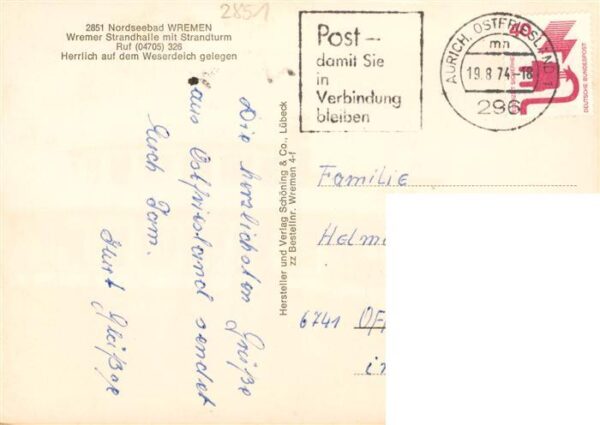 2851
2851 Nordseebad WREMEN
Wremer Strandhalle mit Strandturm
Ruf (04705) 326
Herrlich auf dem Weserdeich gelegen
Post –
damit Sie
in
Verbindung
bleiben
AURICH, OSTFRIESLAND 1
mh
19.8.74-18
296
40
DEUTSCHE BUNDESPOST
Die herzlichsten Grüße
aus Ostfriesland sendet
Euch Fam.
Kurt
Hersteller und Verlag Schöning & Co., Lübeck
zz Bestellnr. Wremen 4-f
Familie
Helm
6741 OFF
in